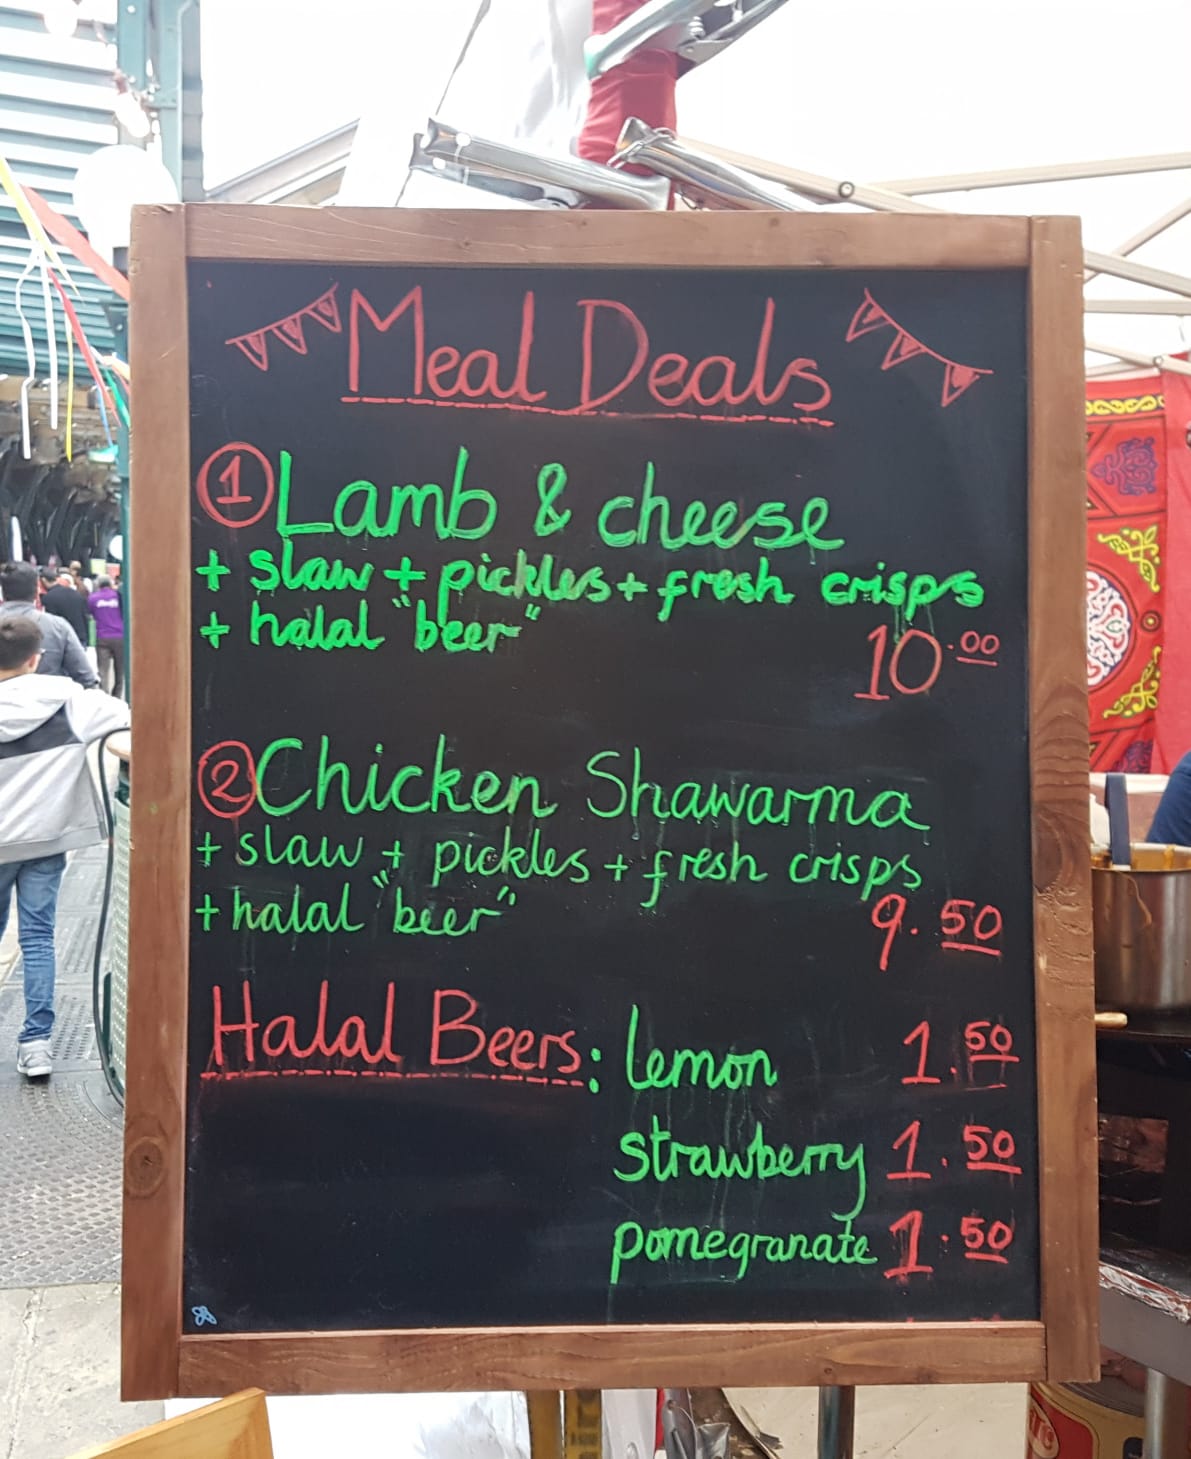 Meal Deals
1 Lamb & cheese
+ slaw + pickles + fresh crisps
+ halal "beer"
10.00
2 Chicken Shawarma
+ slaw + pickles + fresh crisps
+ halal "beer"
9.50
Halal Beers: lemon 1.50
strawberry 1.50
pomegranate 1.50